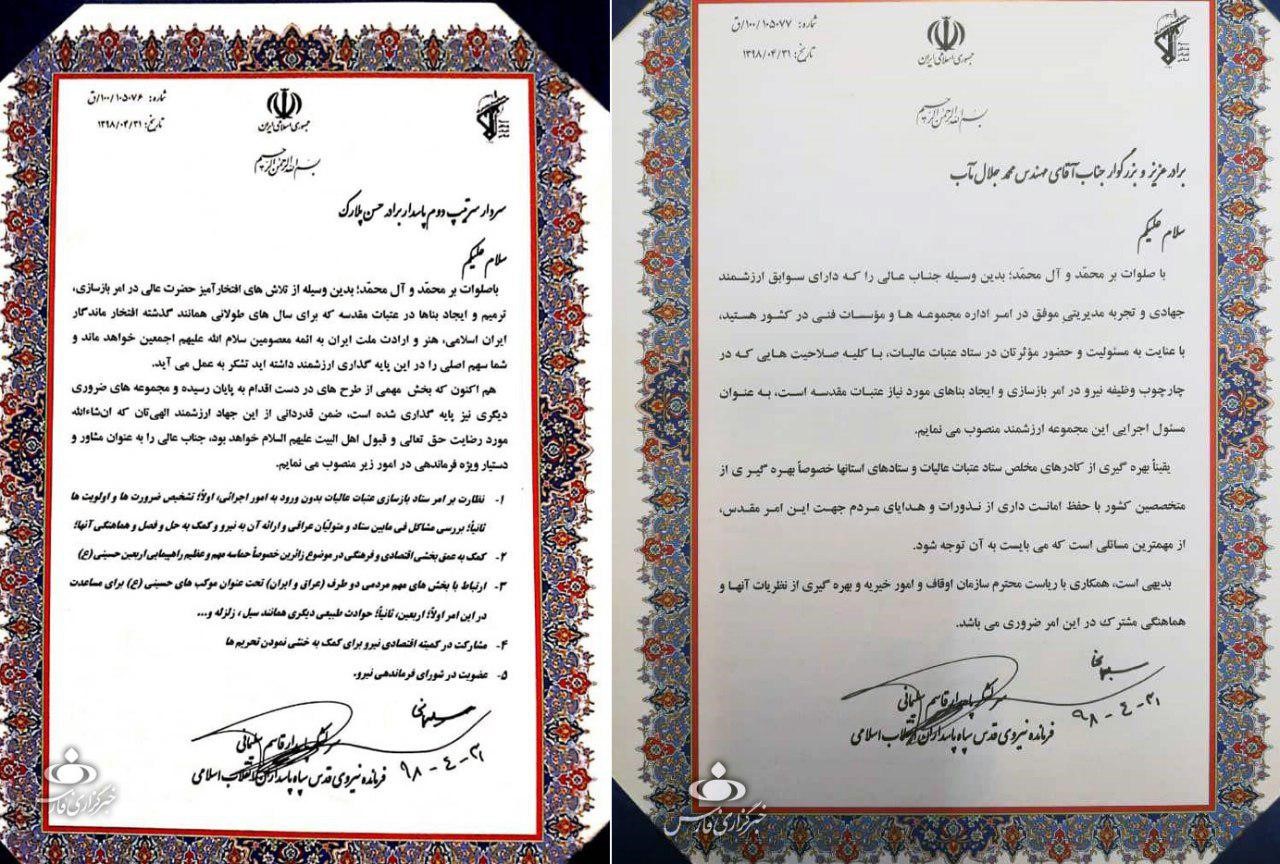 شماره: ۱۰۰/۱۰۵۰۷۶/ق
تاریخ: ۱۳۹۸/۰۴/۳۱
جمهوری اسلامی ایران
بسم الله الرحمن الرحیم
سردار سرتیپ دوم پاسدار برادر حسن پلارک
سلام علیکم
باصلوات بر محمّد و آل محمّد؛ بدین وسیله از تلاش های افتخارآمیز حضرت عالی در امر بازسازی،
ترمیم و ایجاد بناها در عتبات مقدسه که برای سال های طولانی همانند گذشته افتخار ماندگار
ایران اسلامی، هنر و ارادت ملت ایران به ائمه معصومین سلام الله علیهم اجمعین خواهد ماند و
شما سهم اصلی را در این پایه گذاری ارزشمند داشته اید تشکر به عمل می آید.
هم اکنون که بخش مهمی از طرح های در دست اقدام به پایان رسیده و مجموعه های ضروری
دیگری نیز پایه گذاری شده است، ضمن قدردانی از این جهاد ارزشمند الهی‌تان که ان‌شاءالله
مورد رضایت حق تعالی و قبول اهل البیت علیهم السلام خواهد بود، جناب عالی را به عنوان مشاور و
دستیار ویژه فرماندهی در امور زیر منصوب می نمایم.
۱- نظارت بر امر ستاد بازسازی عتبات عالیات بدون ورود به امور اجرائی، اولاً؛ تشخیص ضرورت ها و اولویت ها
ثانیاً؛ بررسی مشاکل فی مابین ستاد و متولیّان عراقی و ارائه آن به نیرو و کمک به حل و فصل و هماهنگی آنها؛
۲- کمک به عمق بخشی اقتصادی و فرهنگی در موضوع زائرین خصوصاً حماسه مهم و عظیم راهپیمایی اربعین حسینی (ع)
۳- ارتباط با بخش های مهم مردمی دو طرف (عراق و ایران) تحت عنوان موکب های حسینی (ع) برای مساعدت
در این امر اولاً؛ اربعین، ثانیاً؛ حوادث طبیعی دیگری همانند سیل ، زلزله و...
۴- مشارکت در کمیته اقتصادی نیرو برای کمک به خنثی نمودن تحریم ها
۵- عضویت در شورای فرماندهی نیرو.
سرلشکر پاسدار قاسم سلیمانی
فرمانده نیروی قدس سپاه پاسداران انقلاب اسلامی
۹۸-۴-۳۱
خبرگزاری فارس
شماره: ۱۰۰/۱۰۵۰۷۷/ق
تاریخ: ۱۳۹۸/۰۴/۳۱
جمهوری اسلامی ایران
بسم الله الرحمن الرحیم
برادر عزیز و بزرگوار جناب آقای مهندس محمد جلال مآب
سلام علیکم
با صلوات بر محمّد و آل محمّد؛ بدین وسیله جناب عالی را که دارای سوابق ارزشمند
جهادی و تجربه مدیریتیِ موفق در امر اداره مجموعه ها و مؤسسات فنی در کشور هستید،
با عنایت به مسئولیت و حضور مؤثرتان در ستاد عتبات عالیات، با کلیه صلاحیت هایی که در
چارچوب وظیفه نیرو در امر بازسازی و ایجاد بناهای مورد نیاز عتبات مقدسه است، به عنوان
مسئول اجرایی این مجموعه ارزشمند منصوب می نمایم.
یقیناً بهره گیری از کادرهای مخلص ستاد عتبات عالیات و ستادهای استانها خصوصاً بهره گیری از
متخصصین کشور با حفظ امانت داری از نذورات و هدایای مردم جهت این امر مقدس،
از مهمترین مسائلی است که می بایست به آن توجه شود.
بدیهی است، همکاری با ریاست محترم سازمان اوقاف و امور خیریه و بهره گیری از نظریات آنها و
هماهنگی مشترک در این امر ضروری می باشد.
سرلشکر پاسدار قاسم سلیمانی
فرمانده نیروی قدس سپاه پاسداران انقلاب اسلامی
۹۸-۴-۳۱
خبرگزاری فارس